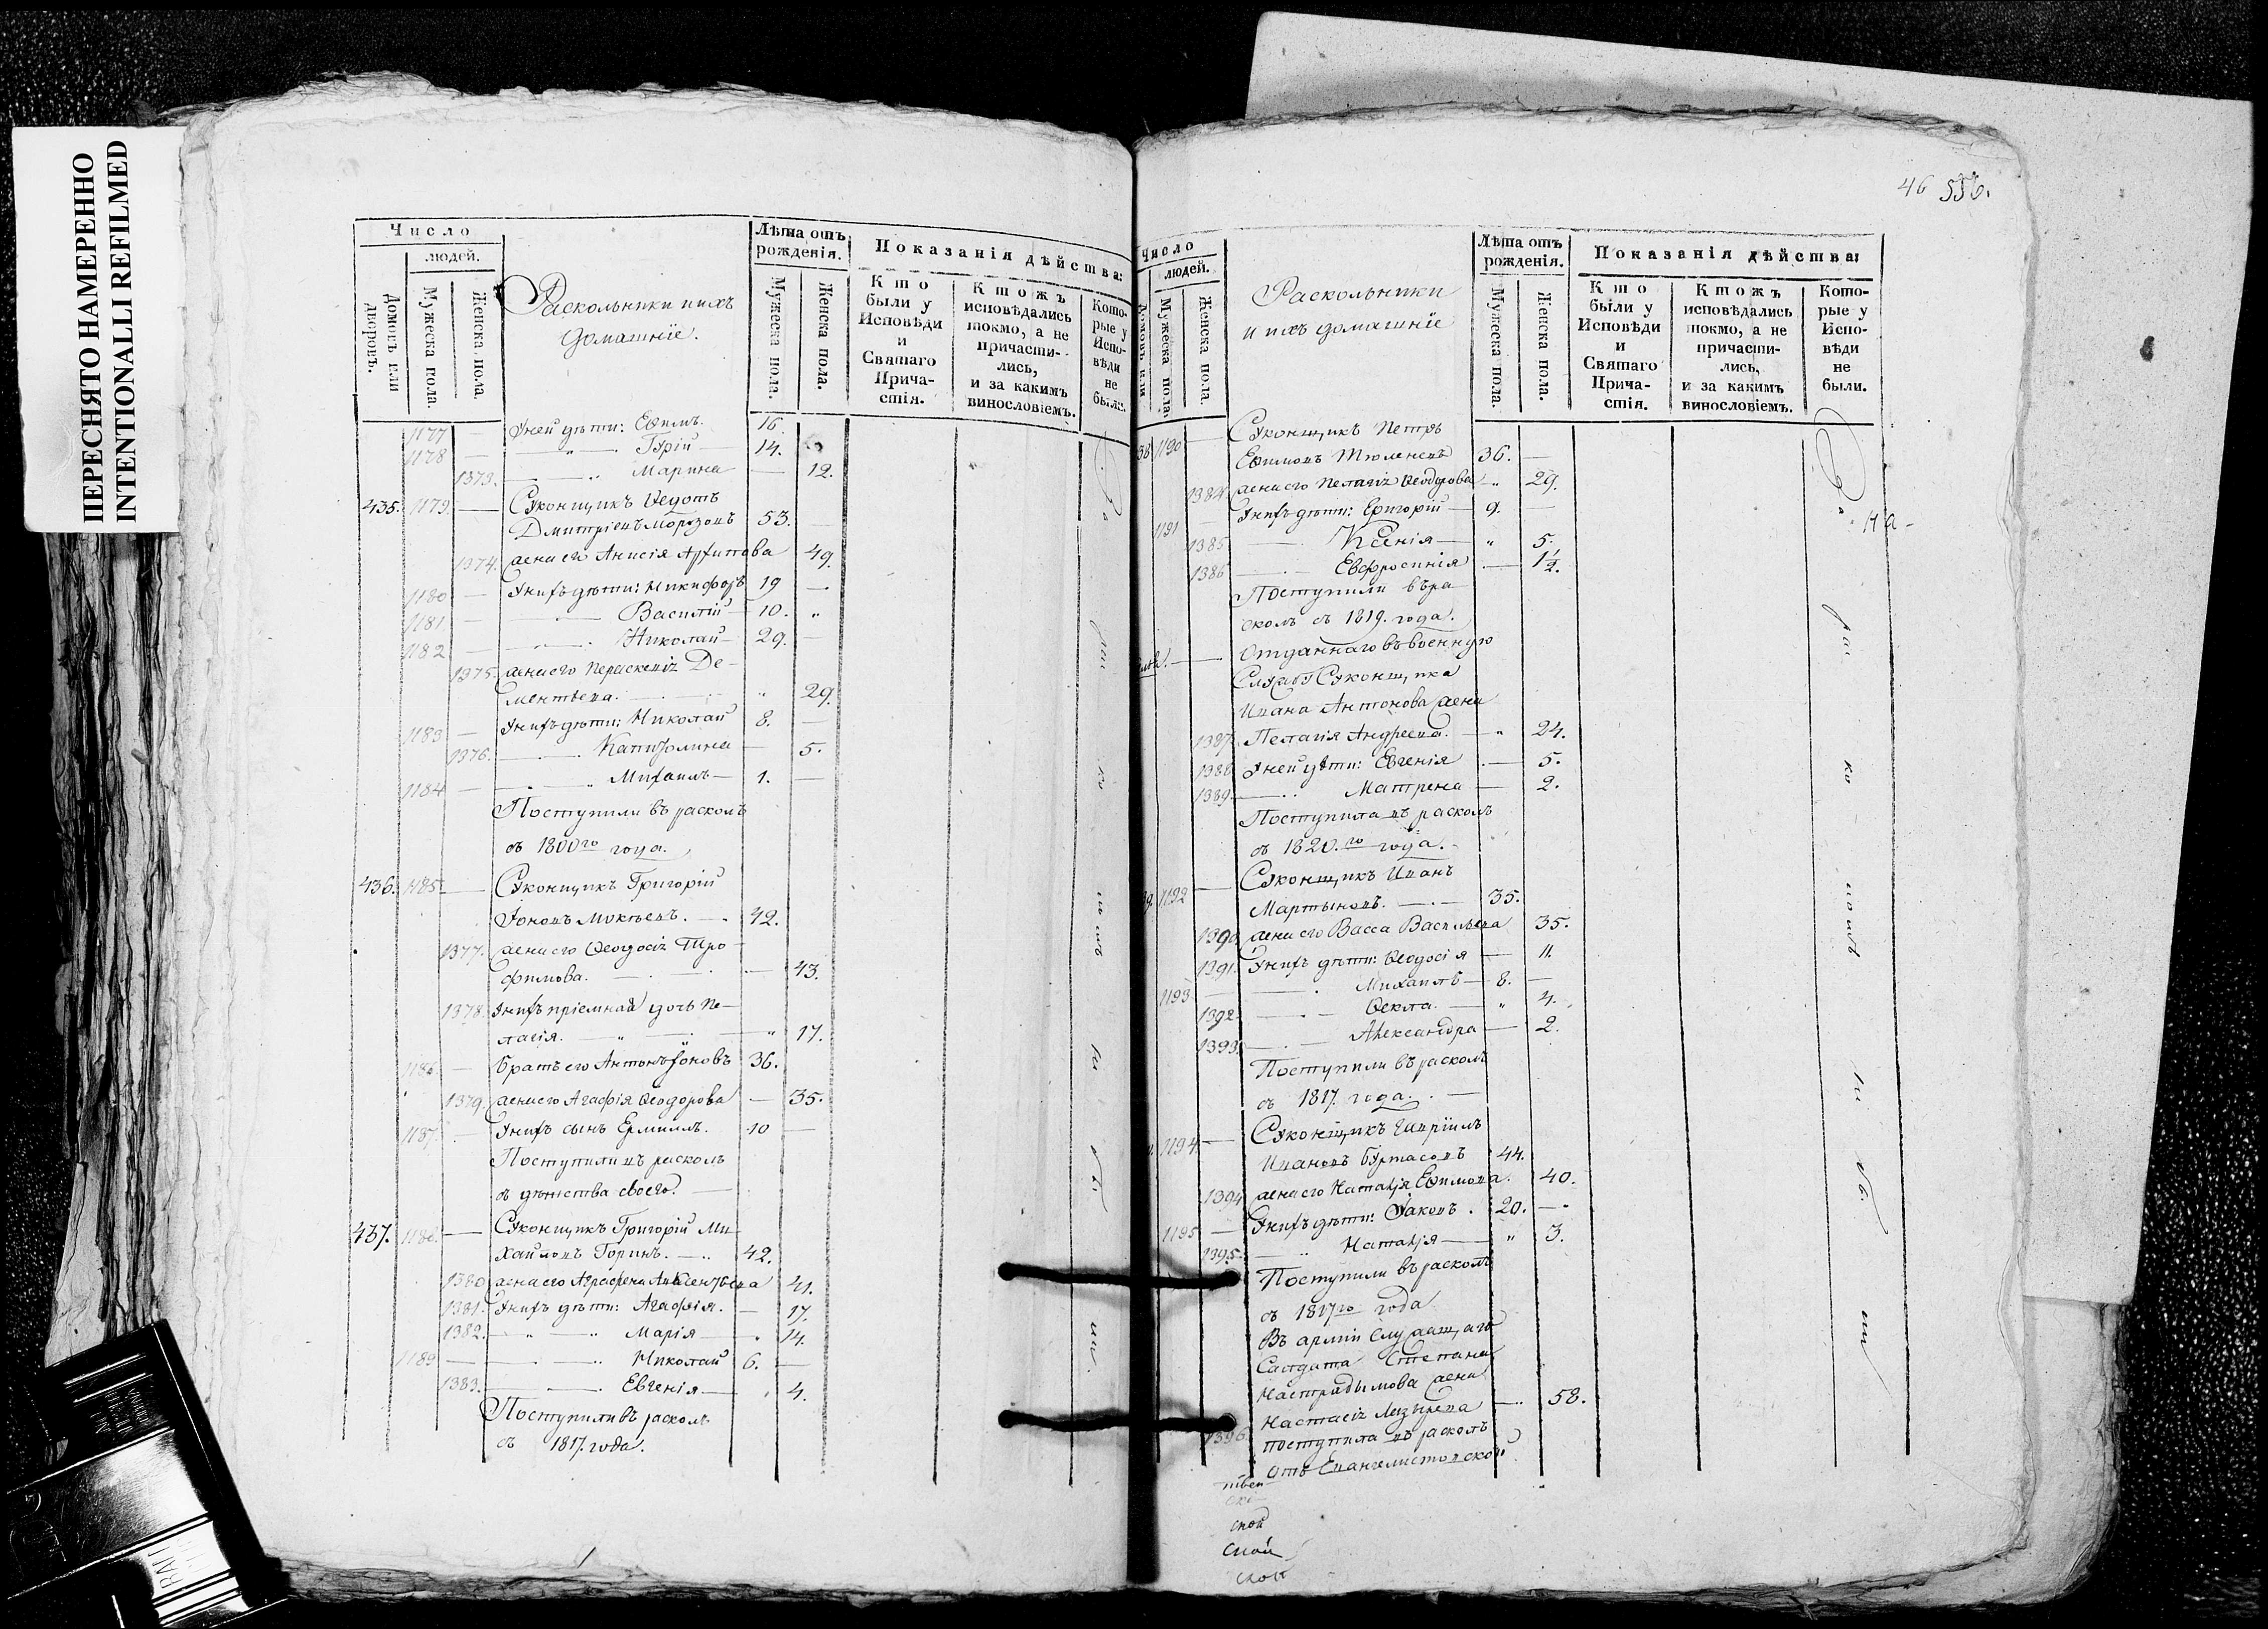 ПЕРЕСНЯТО НАМЕРЕННО
INTENTIONALLI REFILMED
Число
людей.
Домовъ или дворовъ.
Мужеска пола.
Женска пола.
Раскольники и ихъ
домашніе.
Лѣта отъ рожденія.
Мужеска пола.
Женска пола.
Показанія дѣйства:
Кто были у Исповѣди и Святаго Причастія.
Ктожъ исповѣдались токмо, а не причастились, и за какимъ винословіемъ.
Которые у Исповѣди не были.
1177 — У ней дѣти: Ефимъ. 16.
1178 — Гурій 14.
1373. Марина — 12.
435. 1179 — Суконщикъ Ѳедотъ
Дмитріевъ Морозовъ 53. —
1374. жена его Анисія Архипова 49.
1180 — У нихъ дѣти: Никифоръ 19 —
1181 — Василій — 10.
1182 — Николай — 29. —
1375. жена его Параскевія Де-
ментьева. 29.
1183 — У нихъ дѣти: Николай 8. —
1376. Капитолина — 5.
1184 — Михаилъ — 1. —
Поступили въ расколъ
съ 1800го года.
436. 1185 — Суконщикъ Григорій
Іоновъ Мокѣевъ. 42.
1377. жена его Ѳеодосія Тро-
фимова. — 43.
1378. У нихъ пріемная дочь Пе-
лагія. 17.
1186. — Братъ его Антонъ Іоновъ 36.
1379. жена его Агафія Ѳеодорова — 35.
1187. — У нихъ сынъ Ермилъ. 10 —
Поступили въ расколъ
съ дѣтства своего.
437. 1188. — Суконщикъ Григорій Ми-
хайловъ Горинъ. 42.
1380 жена его Аграфена Авксентьева 41.
1381. У нихъ дѣти: Агафія. — 17.
1382. Марія 14.
1189 — Николай 6. —
1383. Евгенія — 4.
Поступили въ расколъ
съ 1817. года.
За
рас
ко
ломъ
не
бы
ли.
46 556.
Число
людей.
Домовъ или
Мужеска пола.
Женска пола.
Раскольники
и ихъ домашніе
Лѣта отъ рожденія.
Мужеска пола.
Женска пола.
Показанія дѣйства:
Кто были у Исповѣди и Святаго Причастія.
Ктожъ исповѣдались токмо, а не причастились, и за какимъ винословіемъ.
Которые у Исповѣди не были.
38 1190 — Суконщикъ Петръ
Ефимовъ Тюленевъ 36. —
1384 жена его Пелагія Ѳеодорова 29.
1191 — У нихъ дѣти: Григорій — 9. —
1385 Ксенія — 5.
1386 Евфросинія — 1½.
Поступили въ ра
сколъ съ 1819. года.
Отданнаго въ военную
Службу Суконщика
Ивана Антонова жена
1387. Пелагія Андреева. 24.
1388 У ней дѣти: Евгенія — 5.
1389. Матрена — 2.
Поступила въ расколъ
съ 1820.го года.
39. 1192 — Суконщикъ Иванъ
Мартыновъ. 35.
1390 жена его Васса Васильева 35.
1391. У нихъ дѣти: Ѳеодосія — 11.
1193 — Михаилъ — 8. —
1392 Ѳекла. 4.
1393. Александра — 2.
Поступили въ расколъ
съ 1817. года.
1194 — Суконщикъ Гавріилъ
Ивановъ Буртасовъ 44.
1394 жена его Наталія Ефимова. 40.
1195 — У нихъ дѣти: Іаковъ. 20. —
1395. Наталія — 3.
Поступили въ расколъ
съ 1817го года
Въ арміи служащаго
Салдата Степана
жена
1396 Настасія 58.
поступила въ расколъ
отъ Евангелистовской
За
рас
ко
ломъ
не
бы
ли
ской
ской
ской